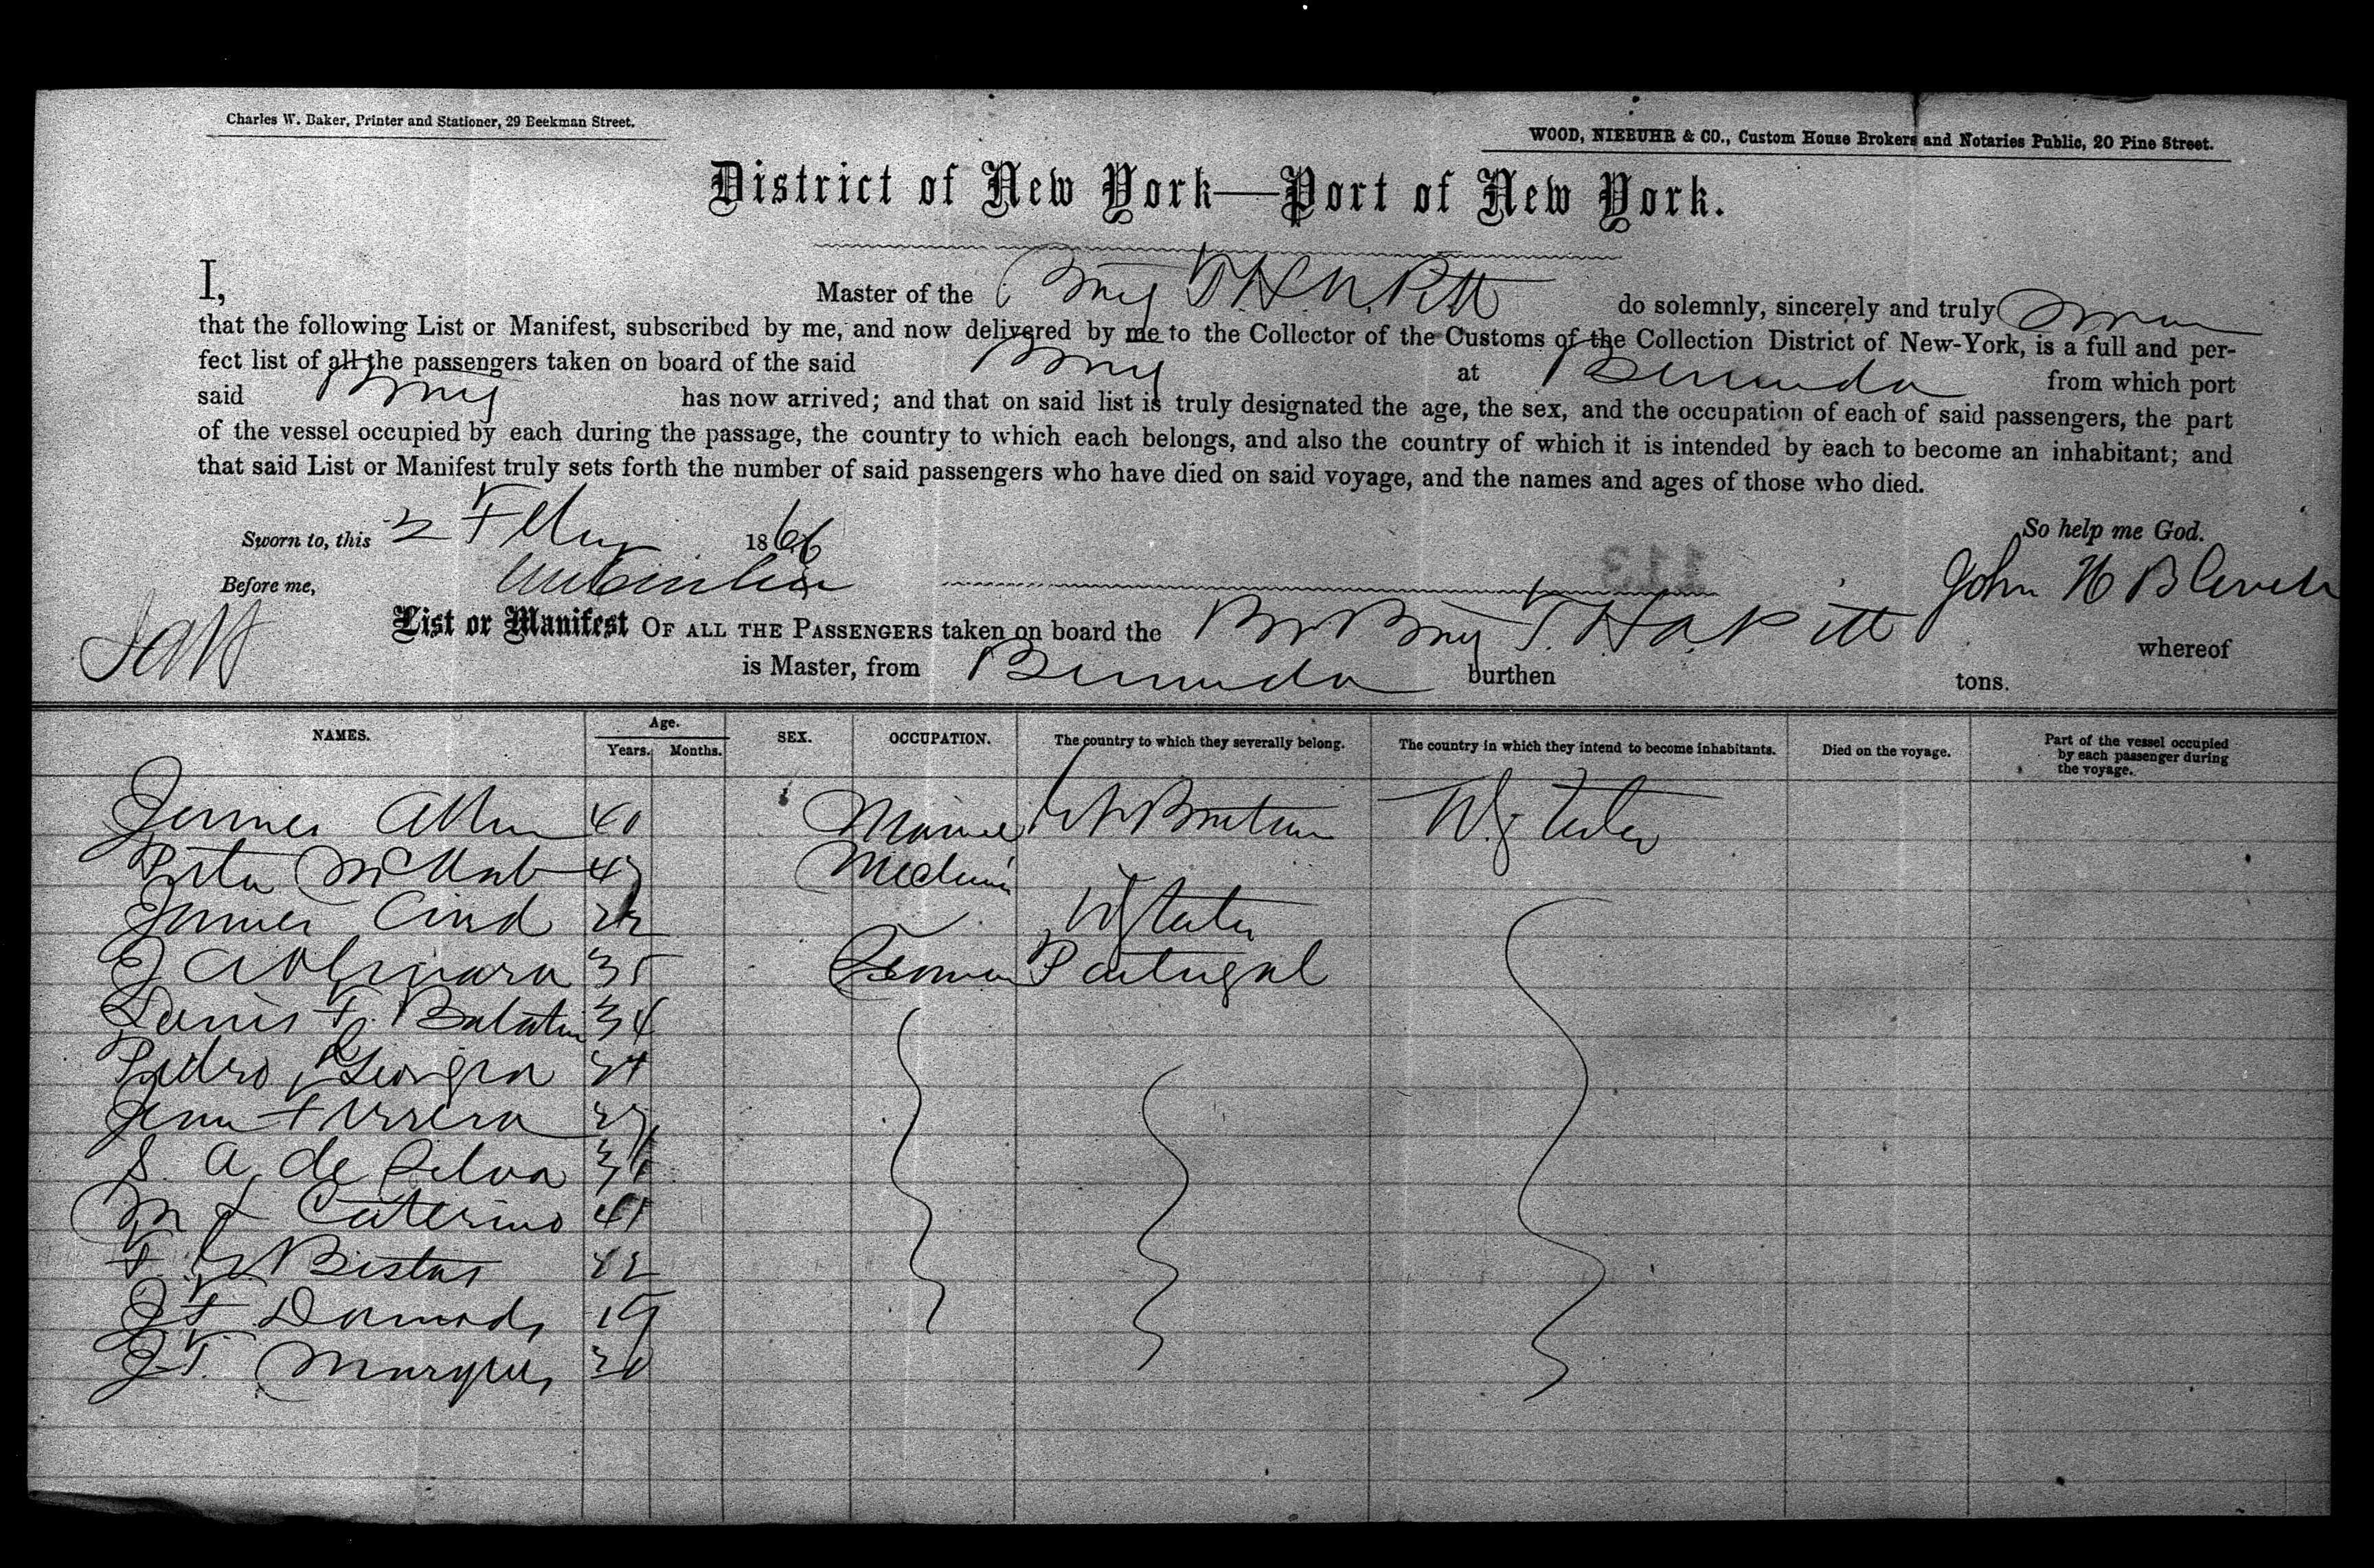 Charles W. Baker, Printer and Stationer, 29 Beekman Street.
WOOD, NIEBUHR & CO., Custom House Brokers and Notaries Public, 20 Pine Street.
District of New York—Port of New York.
I, Master of the Brig T. H. A. Pitt do solemnly, sincerely and truly swear
that the following List or Manifest, subscribed by me, and now delivered by me to the Collector of the Customs of the Collection District of New-York, is a full and per-
fect list of all the passengers taken on board of the said Brig at Bermuda from which port
said Brig has now arrived; and that on said list is truly designated the age, the sex, and the occupation of each of said passengers, the part
of the vessel occupied by each during the passage, the country to which each belongs, and also the country of which it is intended by each to become an inhabitant; and
that said List or Manifest truly sets forth the number of said passengers who have died on said voyage, and the names and ages of those who died.
Sworn to, this 2 Feby 1866 So help me God.
Before me, John H
113
List or Manifest OF ALL THE PASSENGERS taken on board the Br Brig T. H. A. Pitt whereof
is Master, from Bermuda burthen tons.
NAMES. Age. Years. Months. SEX. OCCUPATION. The country to which they severally belong. The country in which they intend to become inhabitants. Died on the voyage. Part of the vessel occupied by each passenger during the voyage.
James Allen 40 Gt Britain U States
Peter 
James 22 U States
J 35 Portugal
34
Pedro Georgia
Ferrera
S. A. de Silva
M J Caterino 41
Bistas 22
J F 19
J F. Marques 30